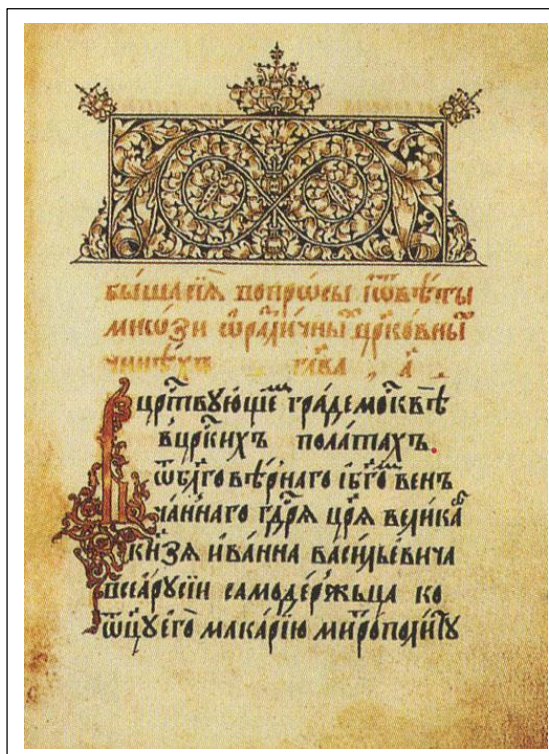 бы́ша сїѧ̀ вопрѡсы iѿвѣ́ты
мнѡ́зи ѡ҆ра́ⷥличны црⷦ҇ко́вны
чинѣ́хъ гла҃ва , а҃ .
Въ црⷭ҇твꙋ́ющеⷨ гра́де моⷭ҇квѣ
вцрⷭ҇кихъ пола́тахъ.
ѿ бл҃гов ѣ́рнаго iбг҃оⷨ вен
ча́ннаго гдⷭ҇рѧ цр҃ѧ велика
кн҃ѕѧ ива́нна васи́льевича
всеа̀ рꙋсїи самоде́ржьца ко
ѿцꙋ̀ егѡ̀ мака́рїю митропоⷧ҇иту